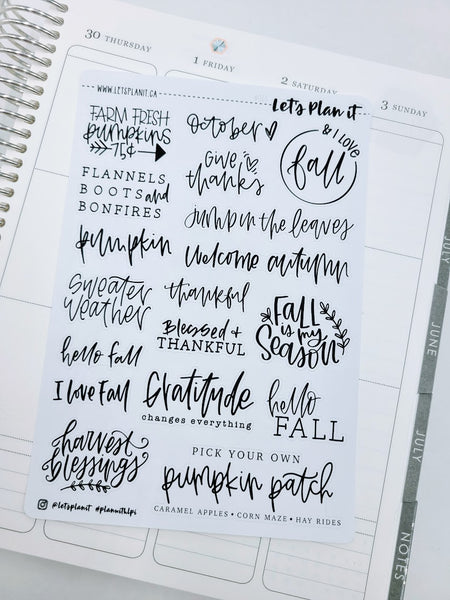 30 THURSDAY
1 FRIDAY
2 SATURDAY
3 SUNDAY
WWW.LETSPLANIT.CA
Let's Plan it
FARM FRESH
pumpkins
75¢
October
& I LOVE
fall
Give
thanks
FLANNELS
BOOTS and
BONFIRES
jump in the leaves
pumpkin
welcome autumn
Sweater
Weather
thankful
FALL
is my
Season
Blessed +
THANKFUL
hello fall
I love Fall
Gratitude
changes everything
hello
FALL
harvest
blessings
PICK YOUR OWN
pumpkin patch
CARAMEL APPLES • CORN MAZE • HAY RIDES
@letsplanit #planwithlpi
JUNE
JULY
NOTES